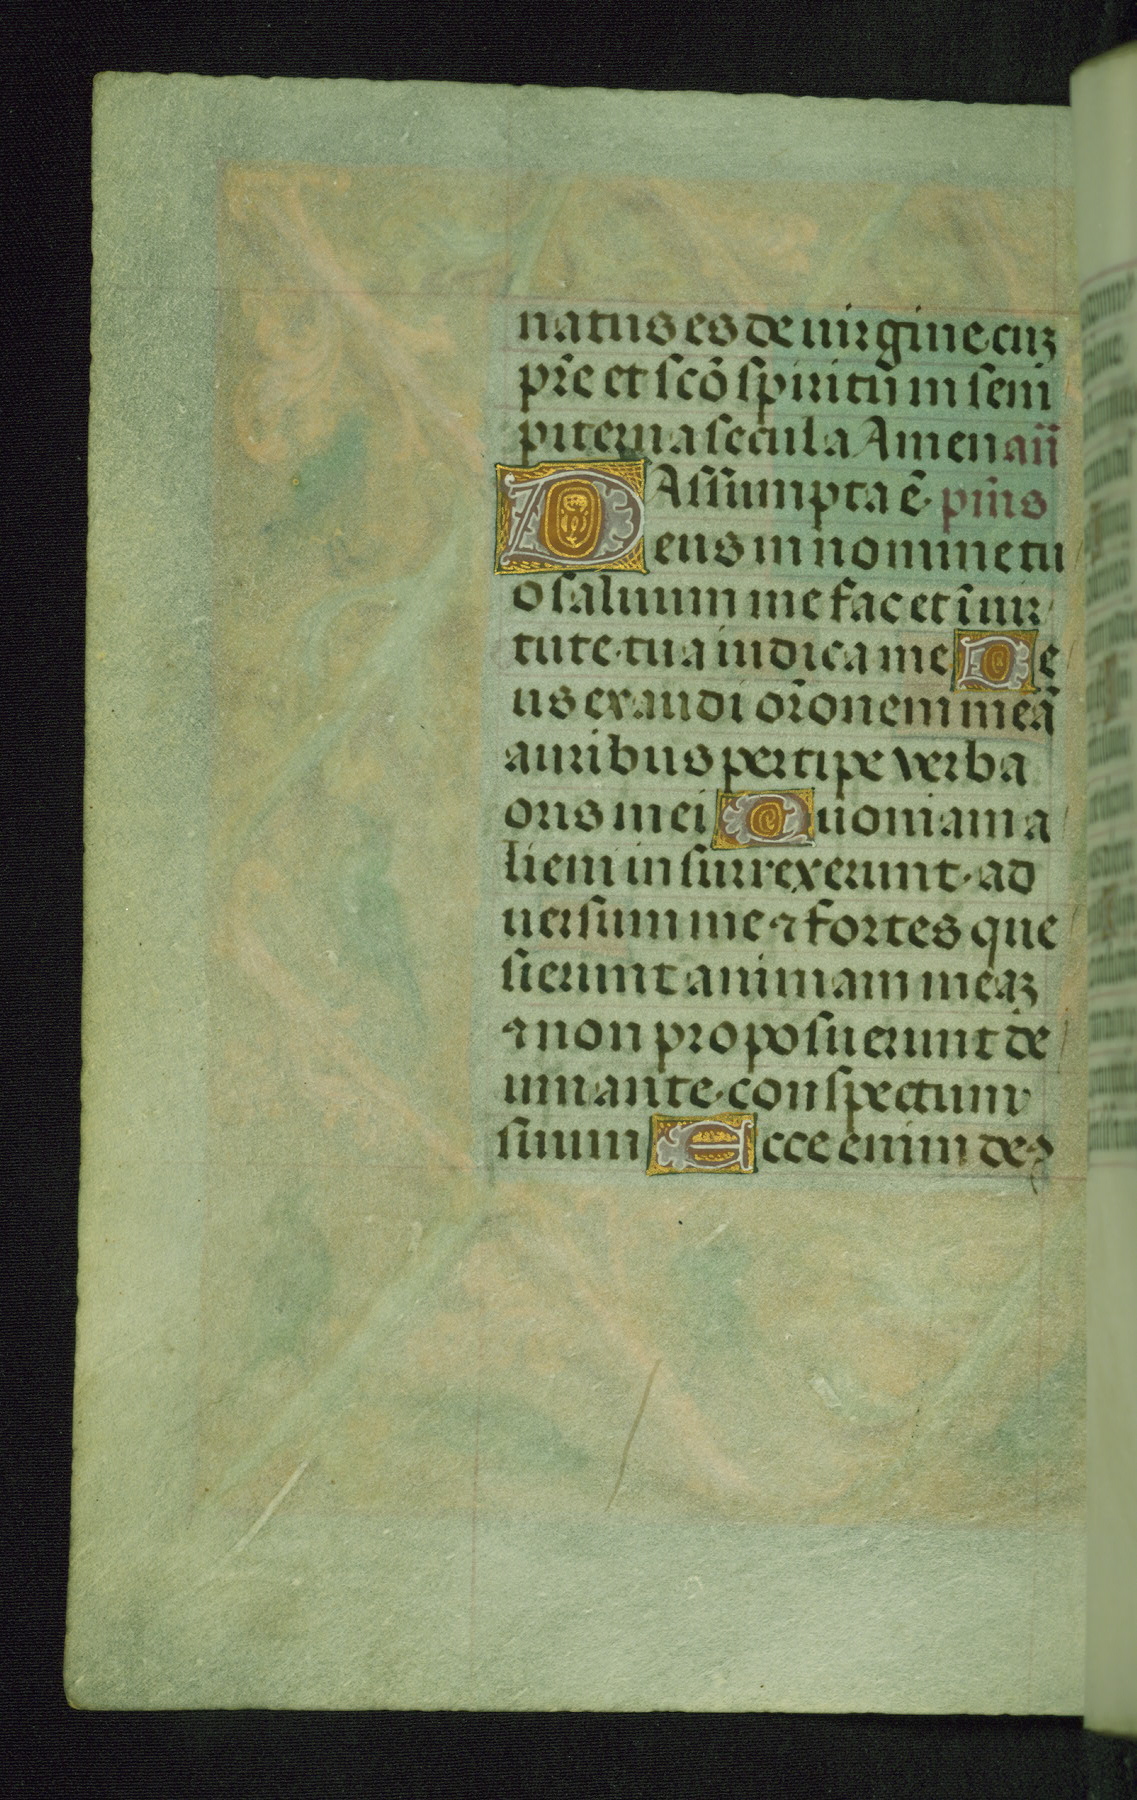 natus es de uirgine cuz
pr̄e et sc̄o spiritū in sem
piterna secula Amen añ
Assūmpta ē. p̄us
Deus in nomine tu
o saluum me fac et ī uir
tute tua iudica me De
us exaudi or̄onem meā
auribus percipe verba
oris mei Quoniam a
lieni insurrexerunt ad
uersum me ⁊ fortes que
sierunt animam meaz
⁊ non proposuerunt de
um ante conspectum
suum Ecce enim de⁊